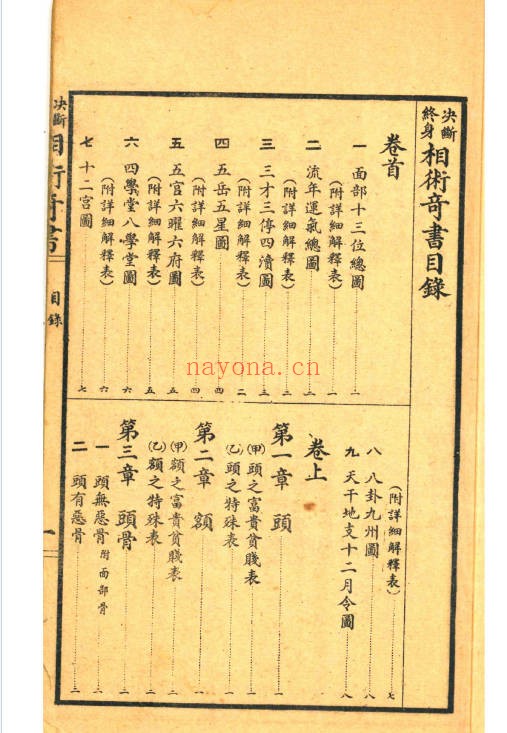 決斷終身 相術奇書目錄
卷首
一 面部十三位總圖 一
(附詳細解釋表) 一
二 流年運氣總圖 二
(附詳細解釋表) 二
三 三才三停四瀆圖 三
(附詳細解釋表) 二
四 五岳五星圖 四
(附詳細解釋表) 四
五 五官六曜六府圖 五
(附詳細解釋表) 五
六 四學堂八學堂圖 六
(附詳細解釋表) 六
七 十二宮圖 七
(附詳細解釋表) 七
八 八卦九州圖 八
九 天干地支十二月令圖 八
卷上
第一章 頭 一
(甲)頭之富貴貧賤表 一
(乙)頭之特殊表 一
第二章 額 一
(甲)額之富貴貧賤表 二
(乙)額之特殊表 二
第三章 頭骨 二
一 頭無惡骨 附面部骨 二
二 頭有惡骨 二
決斷 相術奇書
目錄
一
nayona.cn